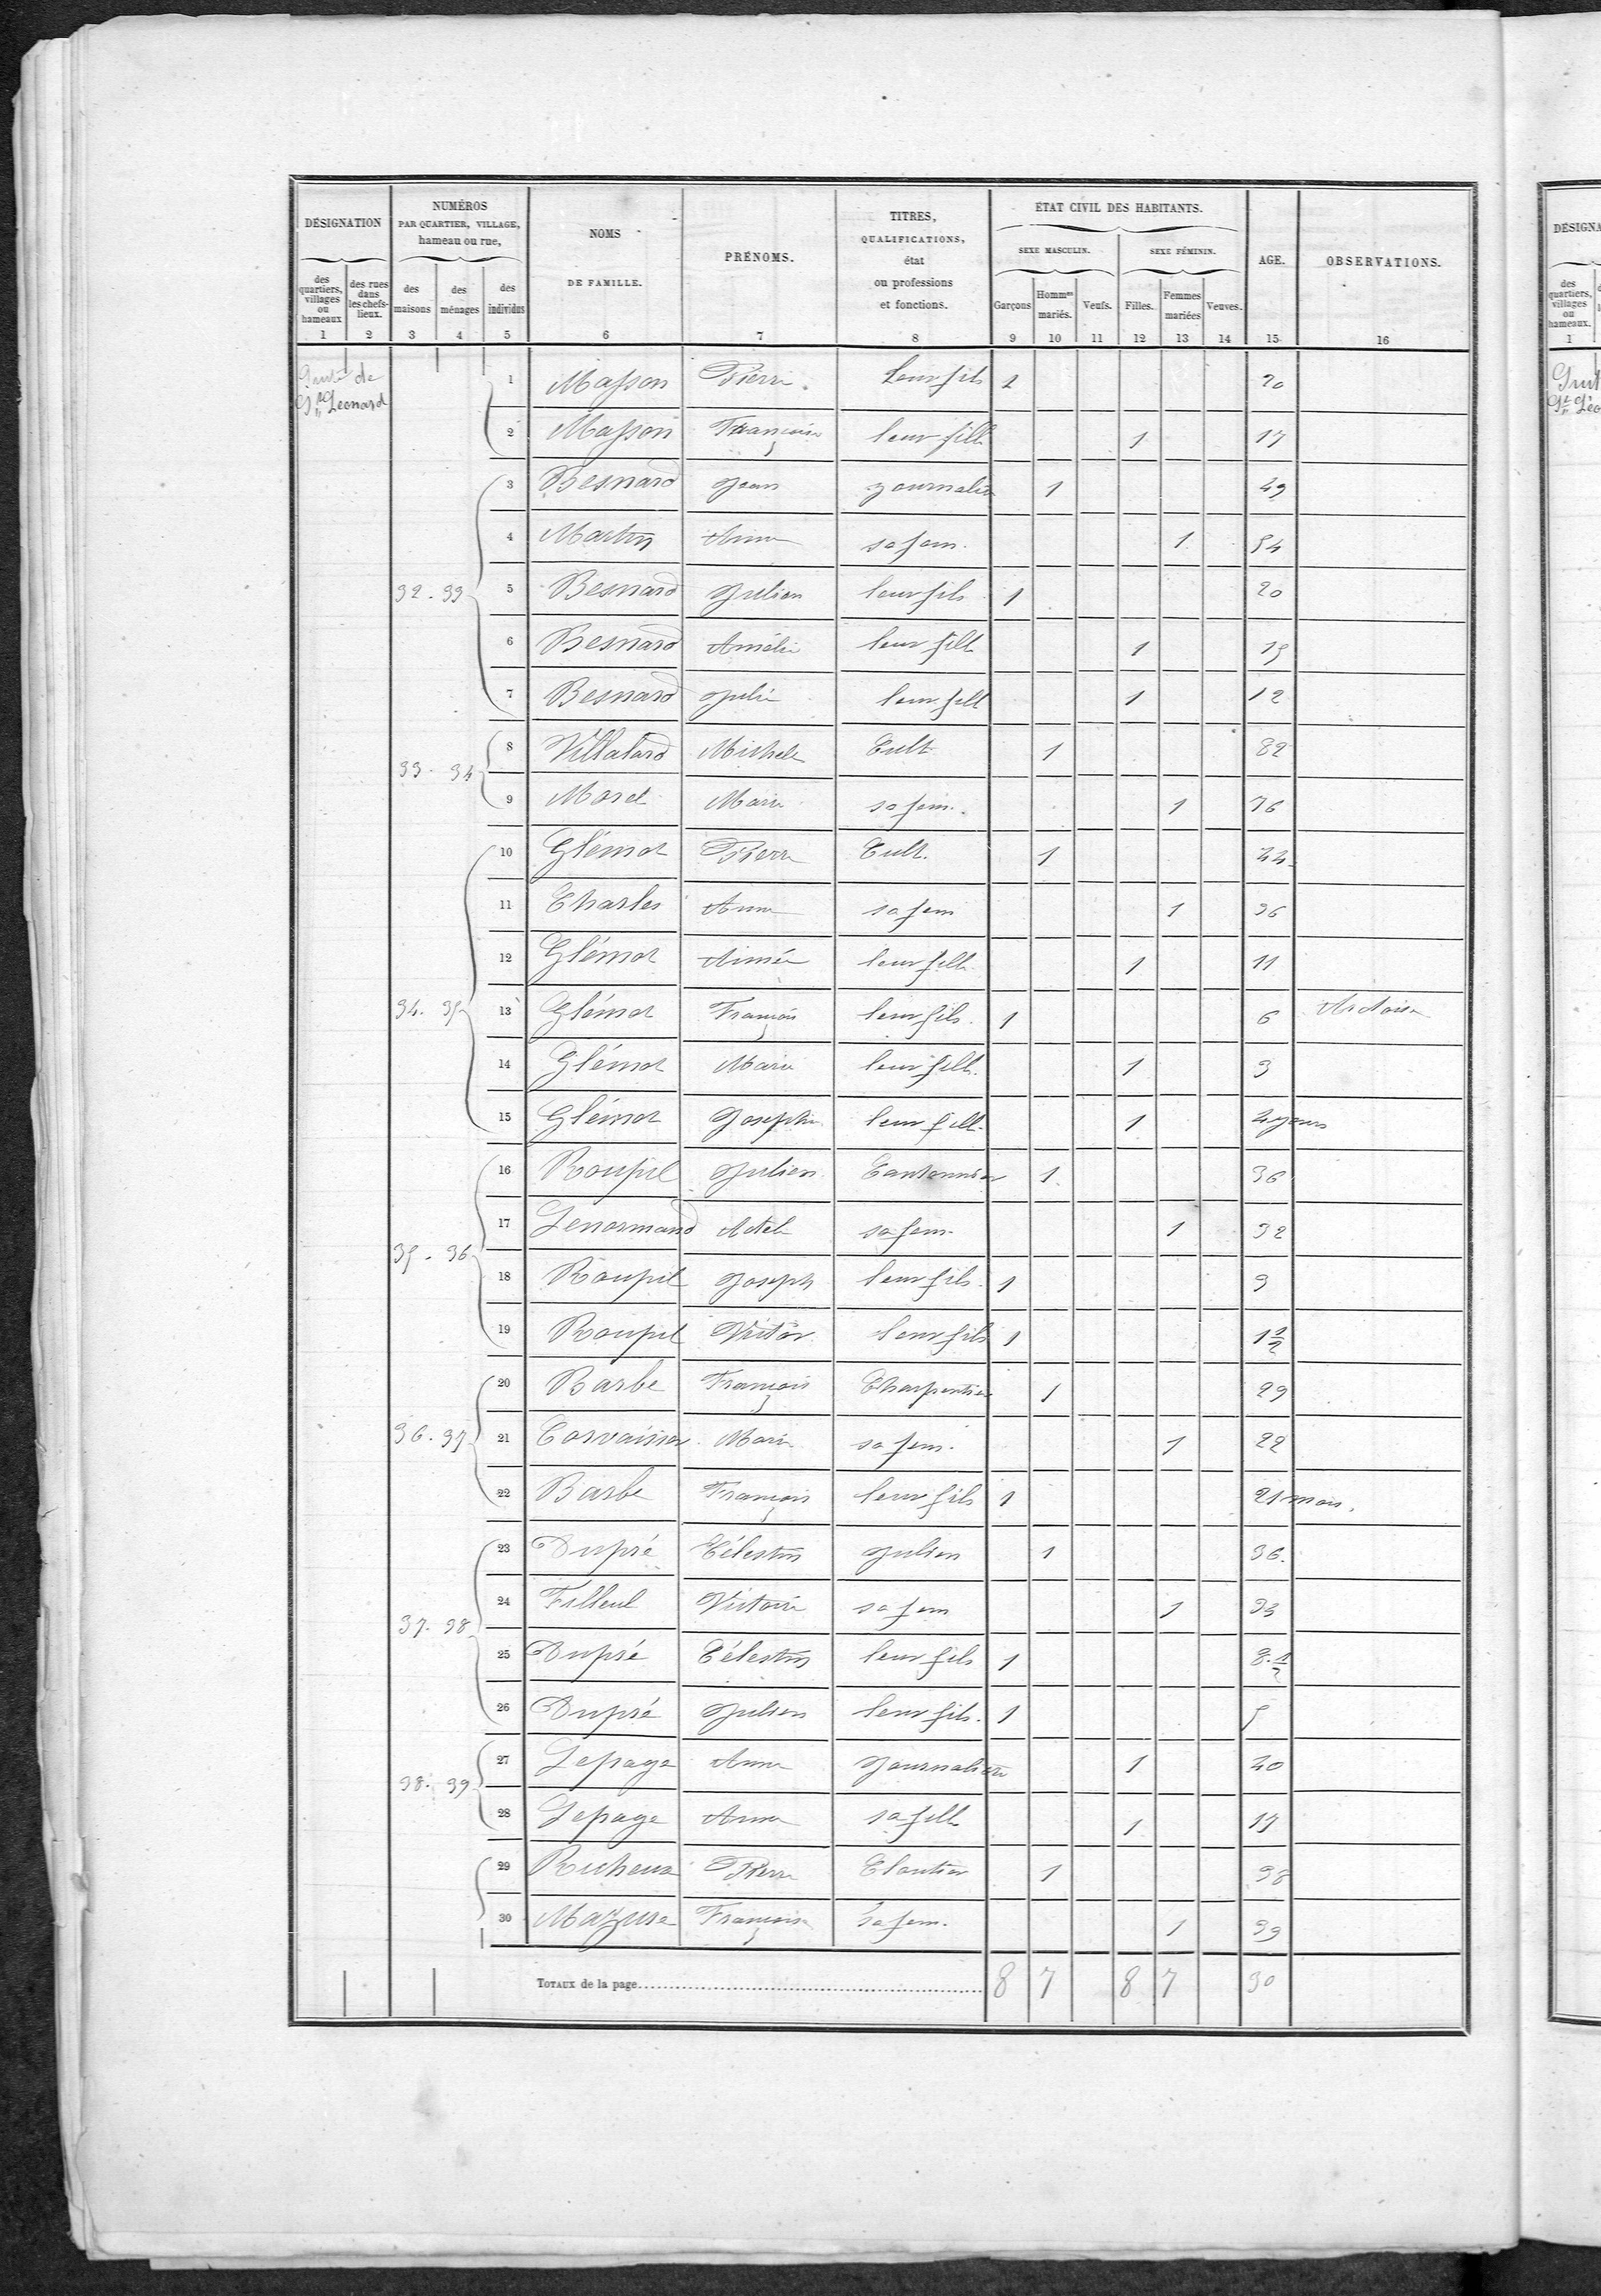 DÉSIGNATION
NUMÉROS
PAR QUARTIER, VILLAGE,
hameau ou rue,
NOMS
DE FAMILLE.
PRÉNOMS.
TITRES,
QUALIFICATIONS,
état
ou professions
et fonctions.
ÉTAT CIVIL DES HABITANTS.
SEXE MASCULIN.
SEXE FÉMININ.
AGE.
OBSERVATIONS.
des quartiers, villages ou hameaux
des rues dans les chefs-lieux.
des maisons
des ménages
des individus
Garçons
Hommes mariés.
Veufs.
Filles.
Femmes mariées
Veuves.
1 2 3 4 5 6 7 8 9 10 11 12 13 14 15 16
de
St Léonard
1 Masson Pierre leur fils 1 20
2 Masson Françoise leur fille 1 17
3 Besnard Jean journalier 1 49
4 Martin Anne sa fem. 1 54
32. 33 5 Besnard Julien leur fils 1 20
6 Besnard Amélie leur fille 1 15
7 Besnard Julie leur fille 1 12
8 Villalard Michel Cult. 1 82
33. 34
9 Morel Marie sa fem. 1 76
10 Glémot Pierre Cult. 1 44
11 Charles Anne sa fem 1 36
12 Glémot Aimée leur fille 1 11
34. 35 13 Glémot François leur fils. 1 6
14 Glémot Marie leur fille. 1 3
15 Glémot Joséphine leur fille. 1 4 jours
16 Roupil Julien Cantonnier 1 36
17 Lenormand Adèle sa fem. 1 32
35. 36
18 Roupil Joseph leur fils. 1 3
19 Roupil Victor leur fils 1 1 1/2
20 Barbe François Charpentier 1 29
36. 37 21 Corvaisier Marie sa fem. 1 22
22 Barbe François leur fils 1 21 mois.
23 Dupré Célestin Julien 1 36.
24 Filleul Victoire sa fem 1 33
37. 38
25 Dupré Célestin leur fils 1 8. 1/2
26 Dupré Julien leur fils. 1 5
27 Lepage Anne Journalière 1 40
38. 39
28 Lepage Anne sa fille 1 17
29 Richeux Pierre Cloutier 1 38
30 Mazure Françoise sa fem. 1 39
TOTAUX de la page 8 7 8 7 30
DÉSIGNA
des quartiers, villages ou hameaux.
1
St Léo